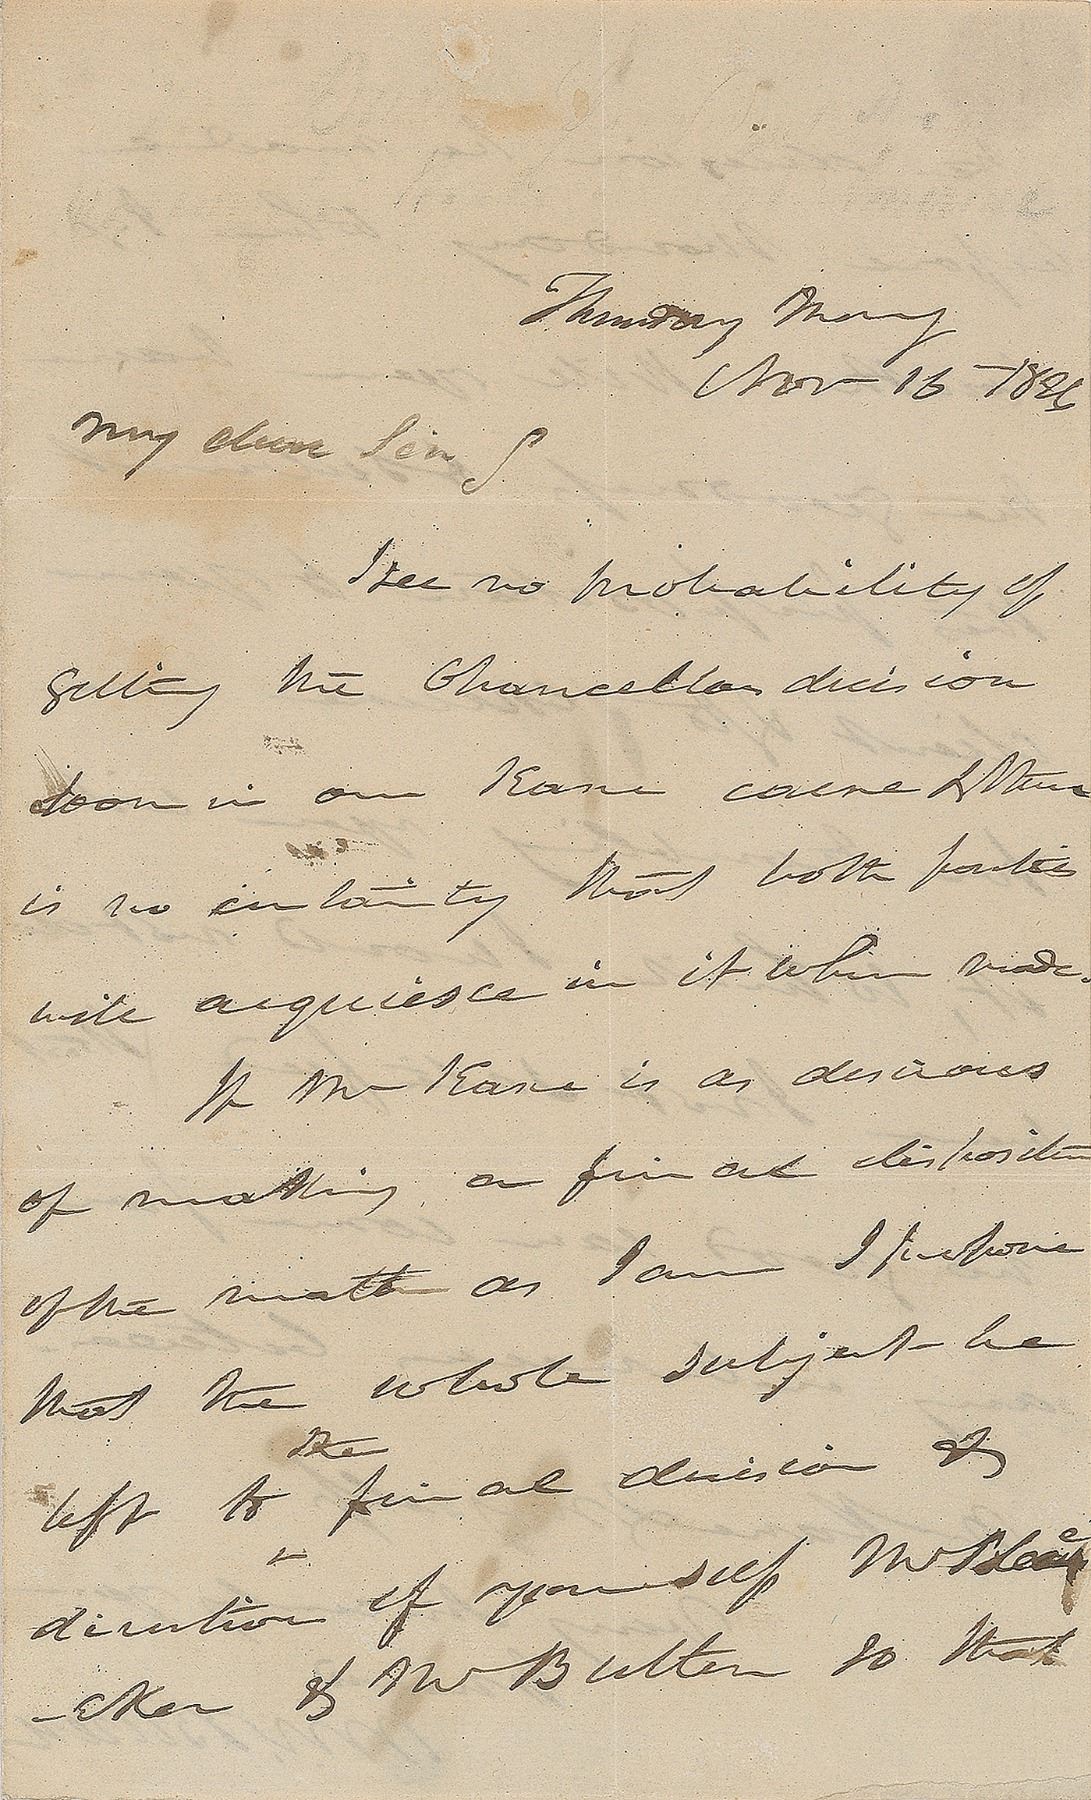 Thursday Morng
Nov 16 - 1826
My dear Sir
I see no probability of
getting the Chancellors decision
soon in our Kane cause & there
is no certainty that both parties
will acquiesce in it when made.
If Mr Kane is as desirous
of making a final disposition
of the matter as I am I propose
that the whole subject be
left to the final decision &
direction of yourself Mr Bleec
-cker & Mr Butler so that